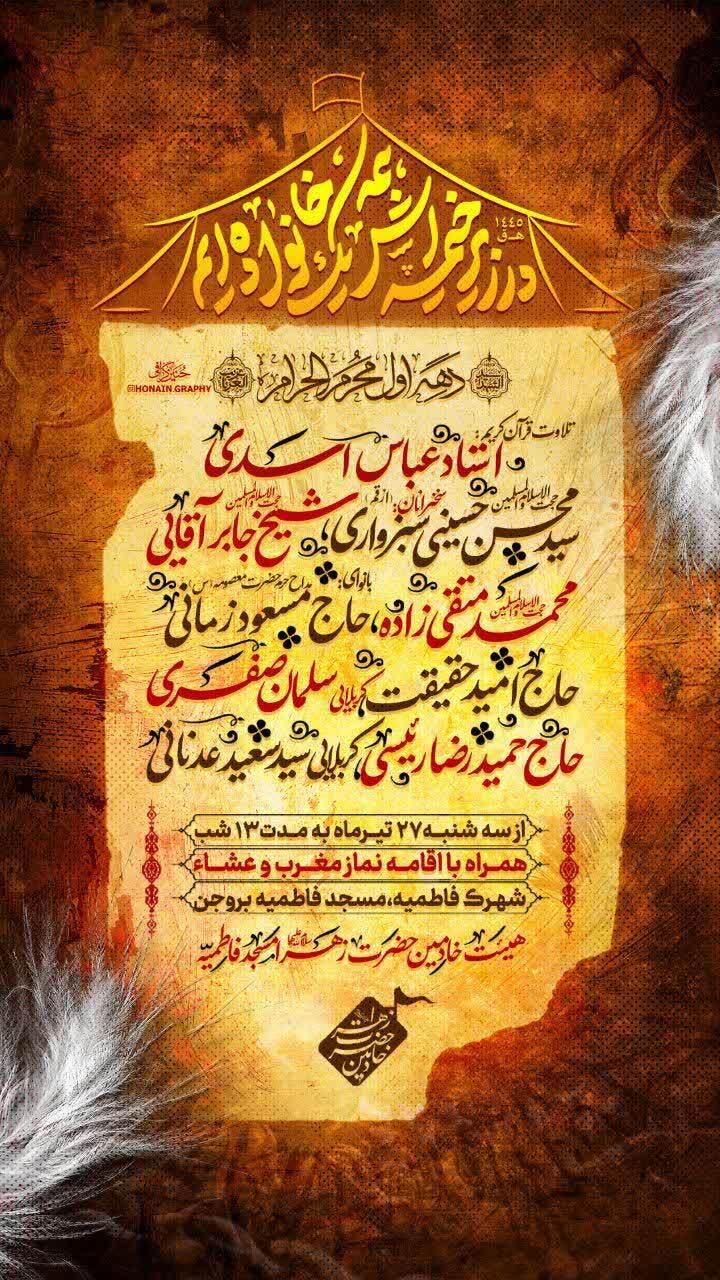 در زیر خیمه اش همه یک خانواده ایم
۱۴۴۵
هـ ق
دهه اول محرم الحرام
حنین گرافی
@HONAIN.GRAPHY
تلاوت قرآن کریم:
استاد عباس اسدی
سخنرانان:
حجت الاسلام والمسلمین سید محسن حسینی سبزواری (از قم)، حجت الاسلام والمسلمین شیخ جابر آقائی
حجت الاسلام والمسلمین محمد متقی زاده،
بانوای:
حاج مسعود زمانی مداح حرم حضرت معصومه (س)
حاج امید حقیقت، کربلایی سلمان صفری
حاج حمیدرضا رئیسی، کربلایی سید سعید عدنانی
از سه شنبه ۲۷ تیرماه به مدت ۱۳ شب
همراه با اقامه نماز مغرب و عشاء
شهرک فاطمیه، مسجد فاطمیه بروجن
هیئت خادمین حضرت زهرا سلام الله علیها مسجد فاطمیه
خادمین حضرت زهرا